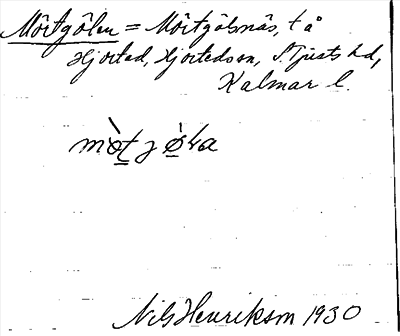 Möitgölen = Möitgölsnäs, t å
Hjorted, Hjorteds sn, S. Tjusts hd,
Kalmar l.
Nils Henriksson 1930